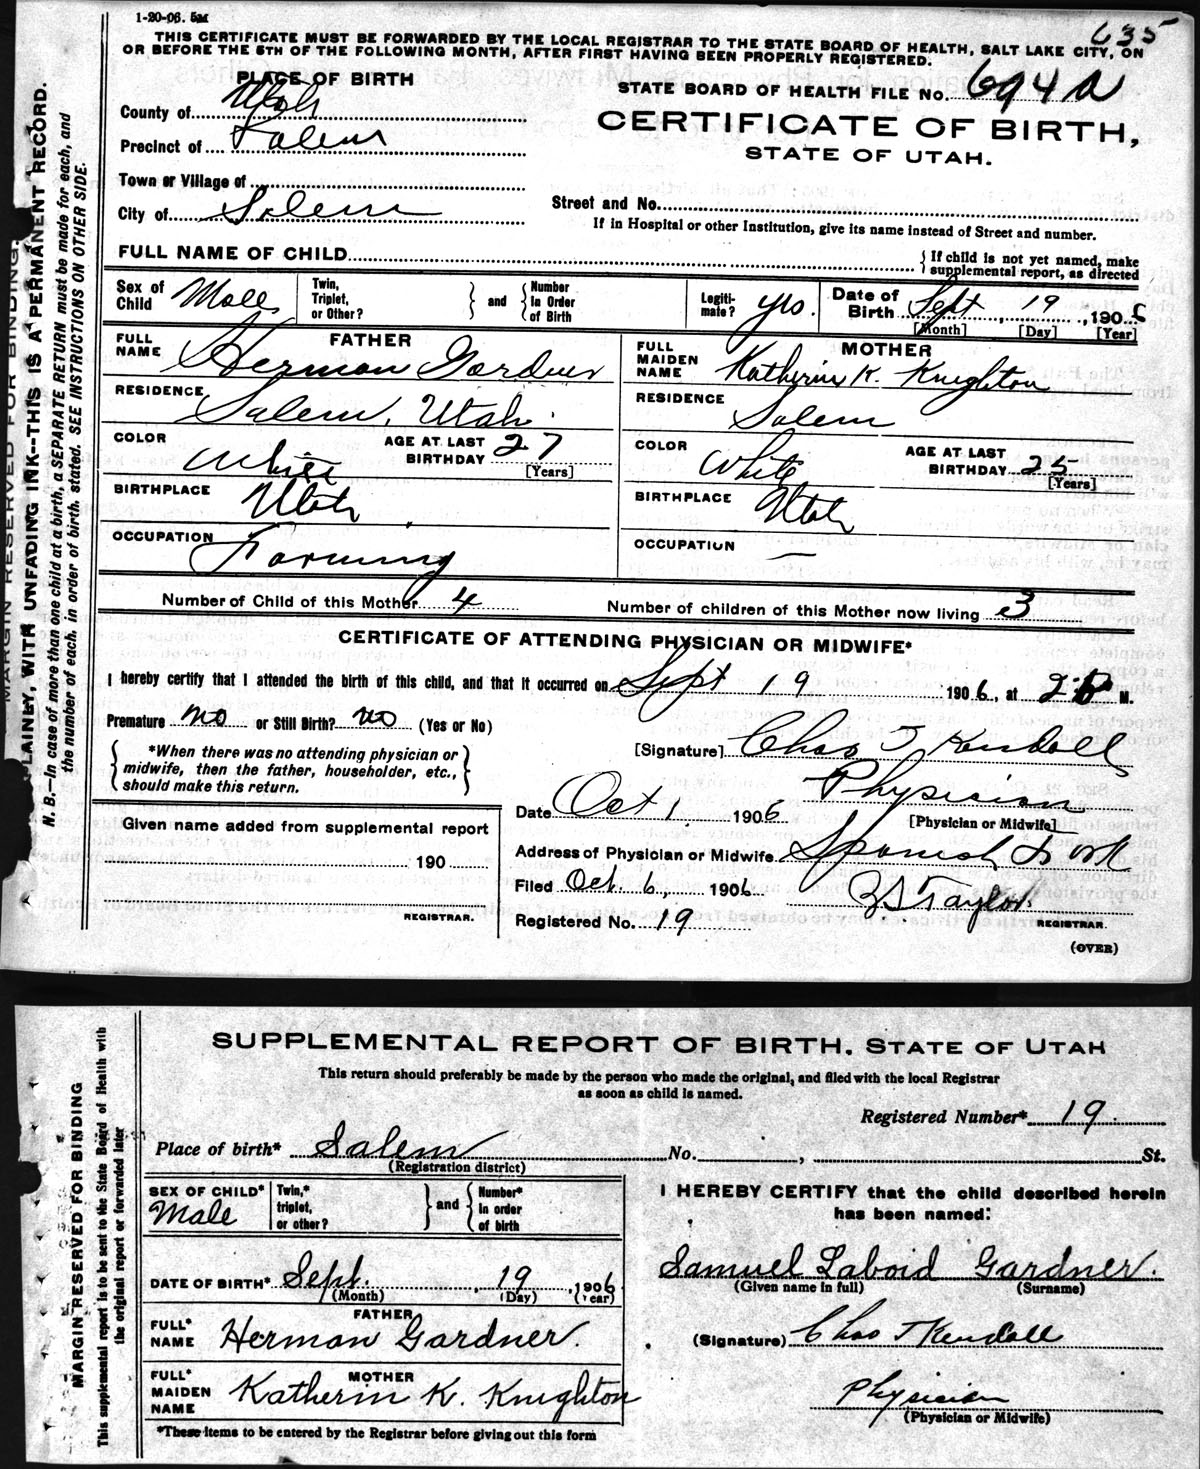 1-20-06. 5M
635
THIS CERTIFICATE MUST BE FORWARDED BY THE LOCAL REGISTRAR TO THE STATE BOARD OF HEALTH, SALT LAKE CITY, ON
OR BEFORE THE 5TH OF THE FOLLOWING MONTH, AFTER FIRST HAVING BEEN PROPERLY REGISTERED.
PLACE OF BIRTH
STATE BOARD OF HEALTH FILE No. 694
County of Utah
CERTIFICATE OF BIRTH,
STATE OF UTAH.
Precinct of Salem
Town or Village of
City of Salem
Street and No.
If in Hospital or other Institution, give its name instead of Street and number.
FULL NAME OF CHILD
{ If child is not yet named, make
supplemental report, as directed
Sex of Child Male
Twin, Triplet, or Other? } and { Number In Order of Birth
Legiti-mate? yes.
Date of Birth Sept 19, 1906
[Month] [Day] [Year]
FATHER
FULL NAME Herman Gardner
MOTHER
FULL MAIDEN NAME Katherin K. Knighton
RESIDENCE Salem, Utah.
RESIDENCE Salem
COLOR White AGE AT LAST BIRTHDAY 27 [Years]
COLOR White AGE AT LAST BIRTHDAY 25 [Years]
BIRTHPLACE Utah
BIRTHPLACE Utah
OCCUPATION Farming
OCCUPATION —
Number of Child of this Mother 4
Number of children of this Mother now living 3
CERTIFICATE OF ATTENDING PHYSICIAN OR MIDWIFE*
I hereby certify that I attended the birth of this child, and that it occurred on Sept 19 1906, at 2 M.
Premature no or Still Birth? no (Yes or No)
{ *When there was no attending physician or
midwife, then the father, householder, etc.,
should make this return. }
[Signature] Chas T Kendall
Physician
[Physician or Midwife]
Date Oct 1 1906
Address of Physician or Midwife Spanish Fork
Filed Oct. 6, 1906
Taylor
REGISTRAR.
Registered No. 19
(OVER)
Given name added from supplemental report
190
REGISTRAR.
MARGIN RESERVED FOR BINDING.
LAINLY, WITH UNFADING INK--THIS IS A PERMANENT RECORD.
N. B.—In case of more than one child at a birth, a SEPARATE RETURN must be made for each, and
the number of each, in order of birth, stated. SEE INSTRUCTIONS ON OTHER SIDE.
SUPPLEMENTAL REPORT OF BIRTH. STATE OF UTAH
This return should preferably be made by the person who made the original, and filed with the local Registrar
as soon as child is named.
Registered Number* 19
Place of birth* Salem No. , St.
(Registration district)
SEX OF CHILD* Male
Twin,* triplet, or other? } and { Number* In order of birth
I HEREBY CERTIFY that the child described herein
has been named:
Samuel Laboid Gardner.
(Given name in full) (Surname)
DATE OF BIRTH* Sept. 19, 1906
(Month) (Day) (Year)
FATHER
FULL* NAME Herman Gardner.
(Signature) Chas T Kendall
MOTHER
FULL* MAIDEN NAME Katherin K. Knighton
Physician
(Physician or Midwife)
*These items to be entered by the Registrar before giving out this form
MARGIN RESERVED FOR BINDING
This supplemental report is to be sent to the State Board of Health with
the original report or forwarded later